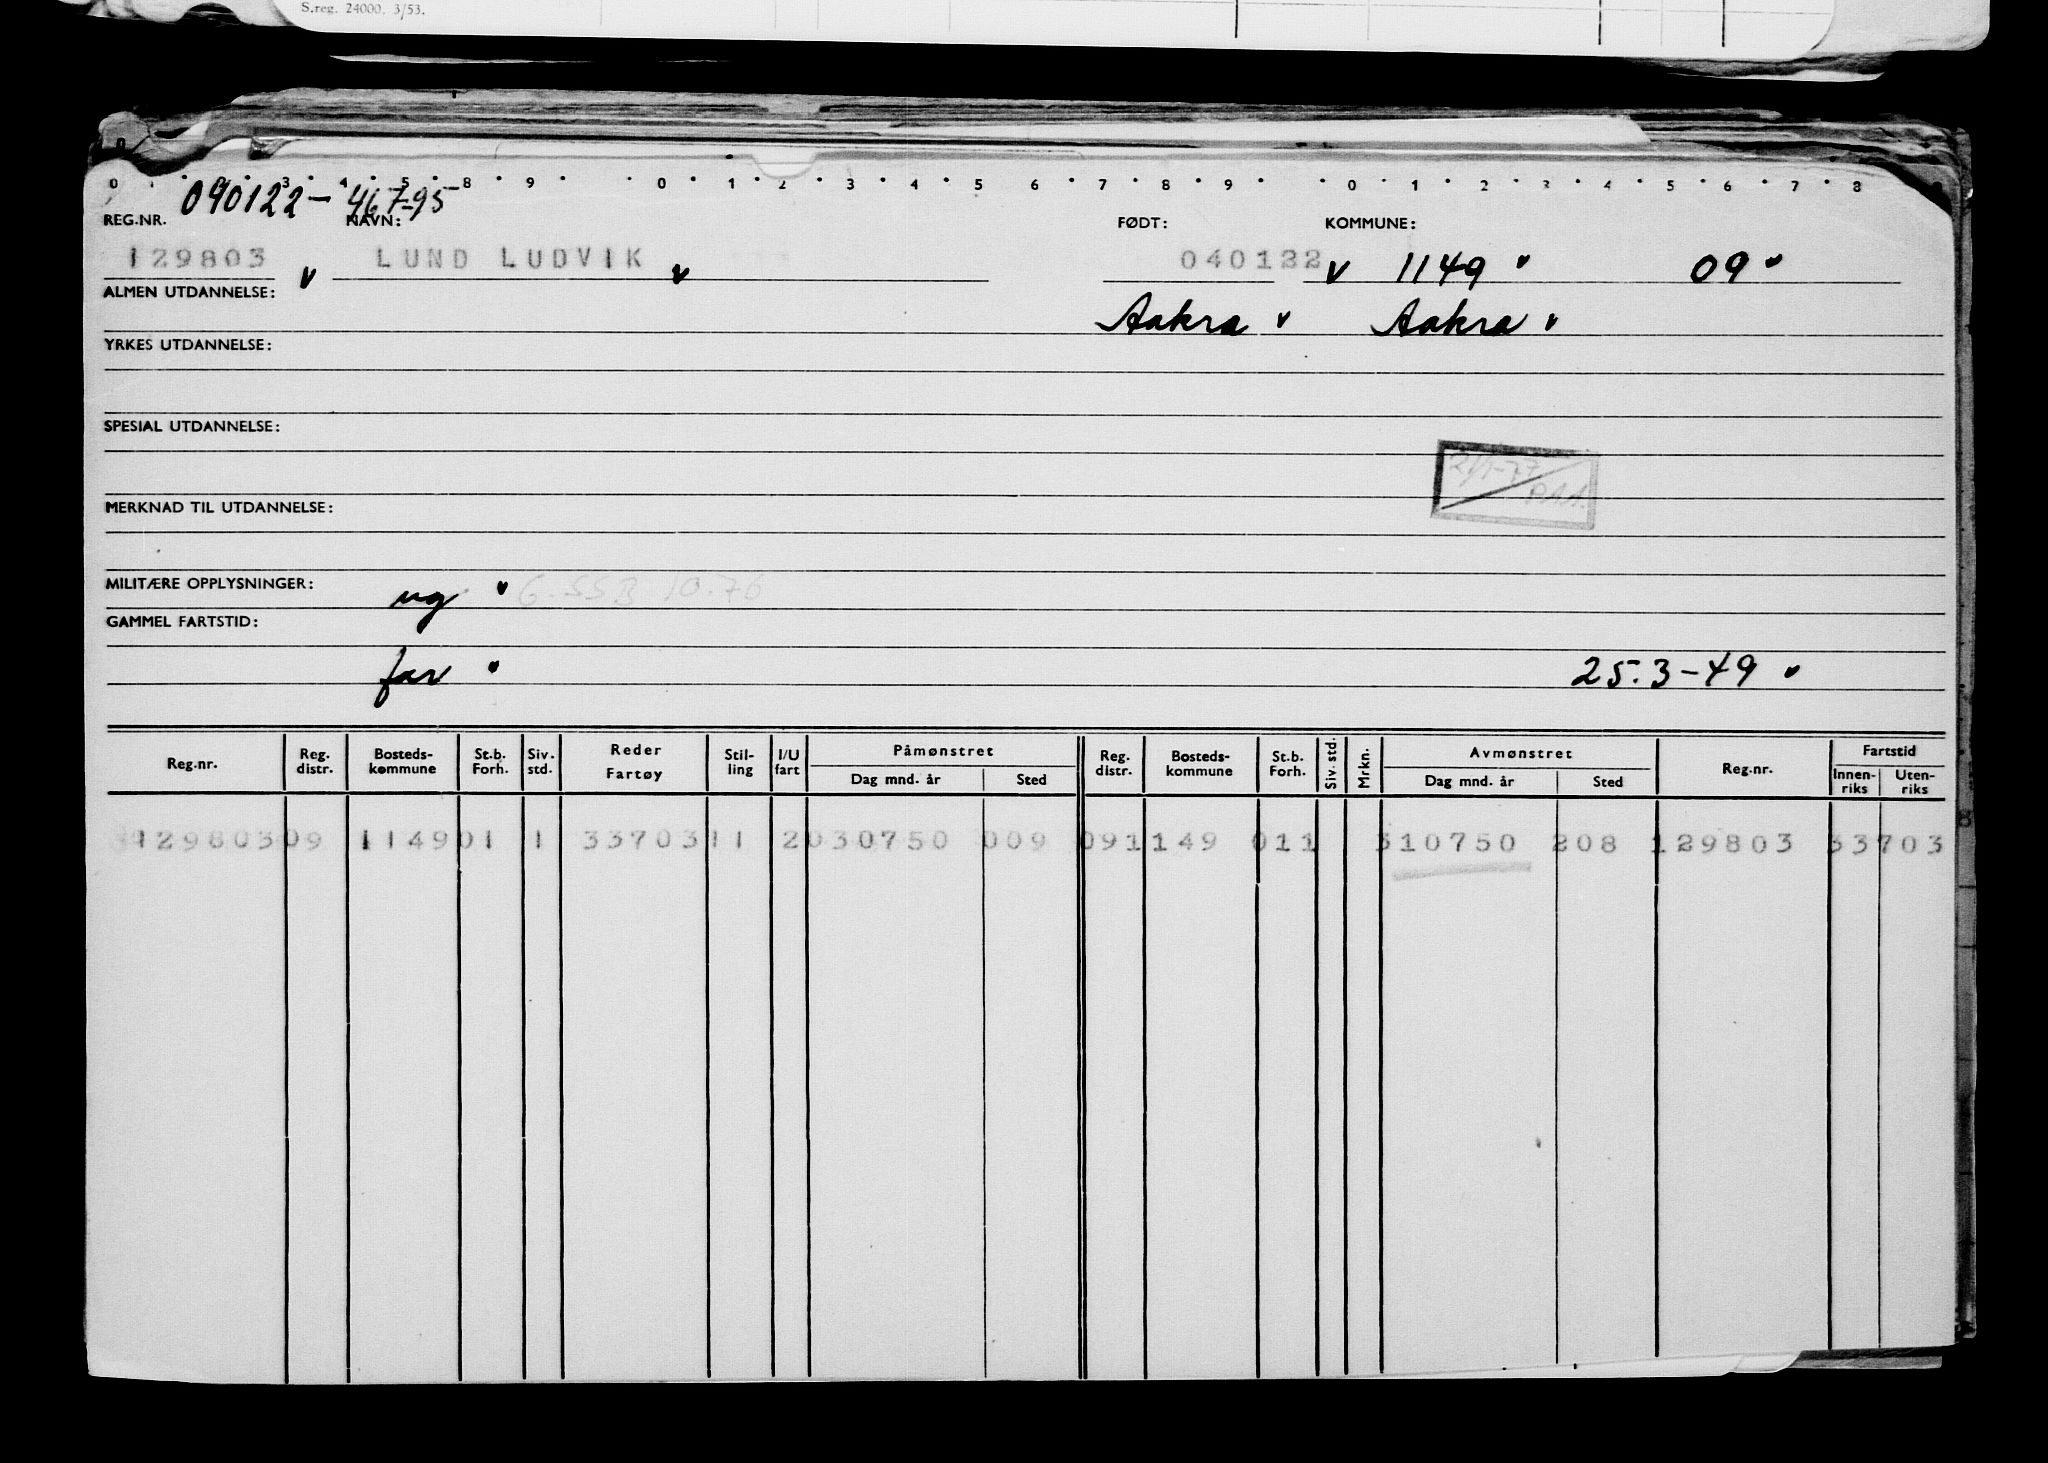 S.reg. 24000. 3/53.
0 1 3 4 5 8 9 0 1 2 3 4 5 6 7 8 9 0 1 2 3 4 5 6 7 8
090122-46795
REG.NR. NAVN: FØDT: KOMMUNE:
129803 v LUND LUDVIK v 040122 v 1149 v 09 v
ALMEN UTDANNELSE: Aakra v Aakra v
YRKES UTDANNELSE:
SPESIAL UTDANNELSE:
21/1-77
P.A.A.
MERKNAD TIL UTDANNELSE:
MILITÆRE OPPLYSNINGER: ug v G-SSB 10.76
GAMMEL FARTSTID:
far v 25.3-49 v
Reg.nr. Reg. distr. Bosteds-kommune St.b. Forh. Siv. std. Reder Fartøy Stil-ling I/U fart Påmønstret Dag mnd. år Sted Reg. distr. Bosteds-kommune St.b. Forh. Siv. std. Mrkn. Avmønstret Dag mnd. år Sted Reg.nr. Fartstid Innen-riks Uten-riks
129803 09 1149 01 1 33703 11 2 030750 009 09 1149 011 310750 208 129803 33703